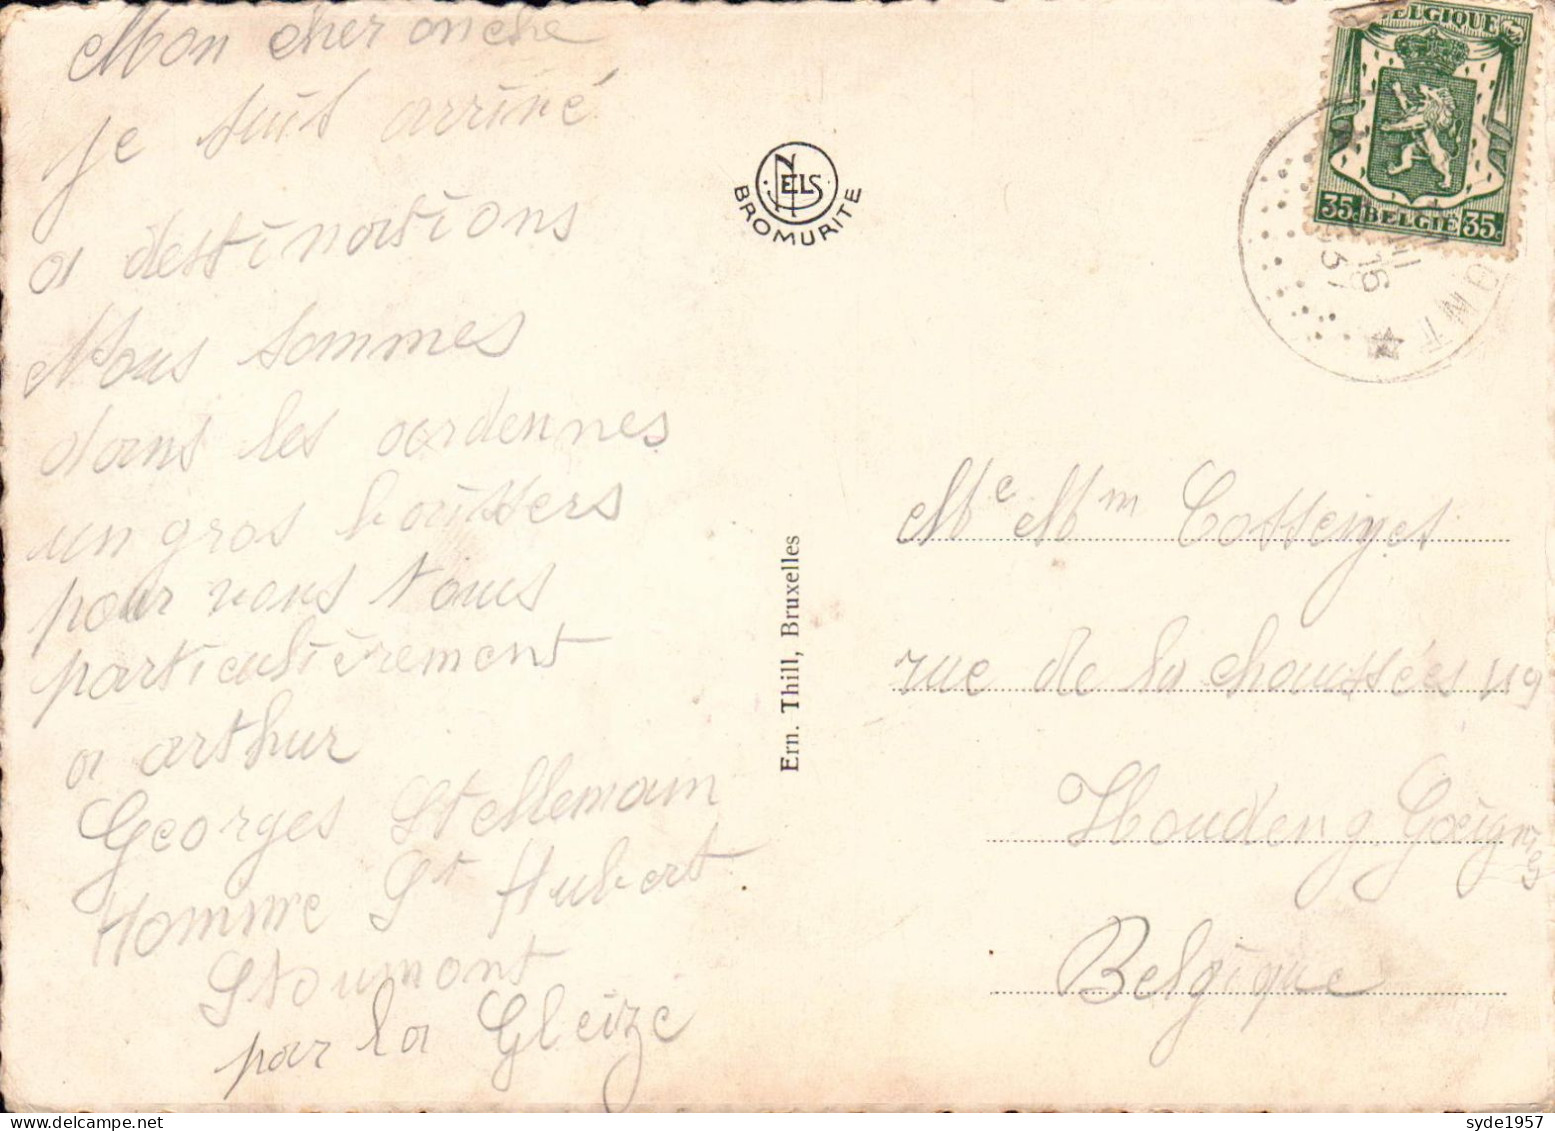 Mon cher oncle
je suis arrivé
a destinations
Nous sommes
dans les ardennes
un gros baissers
pour vous tous
particulièrement
a arthur
Georges Stellemam
Homme St Hubert
Stoumont
par la Gleize
NELS
BROMURITE
Ern. Thill, Bruxelles
BELGIQUE
35. BELGIË 35.
Me Mm
rue de la chaussées 119
Houdeng Goeignies
Belgique
syde1957